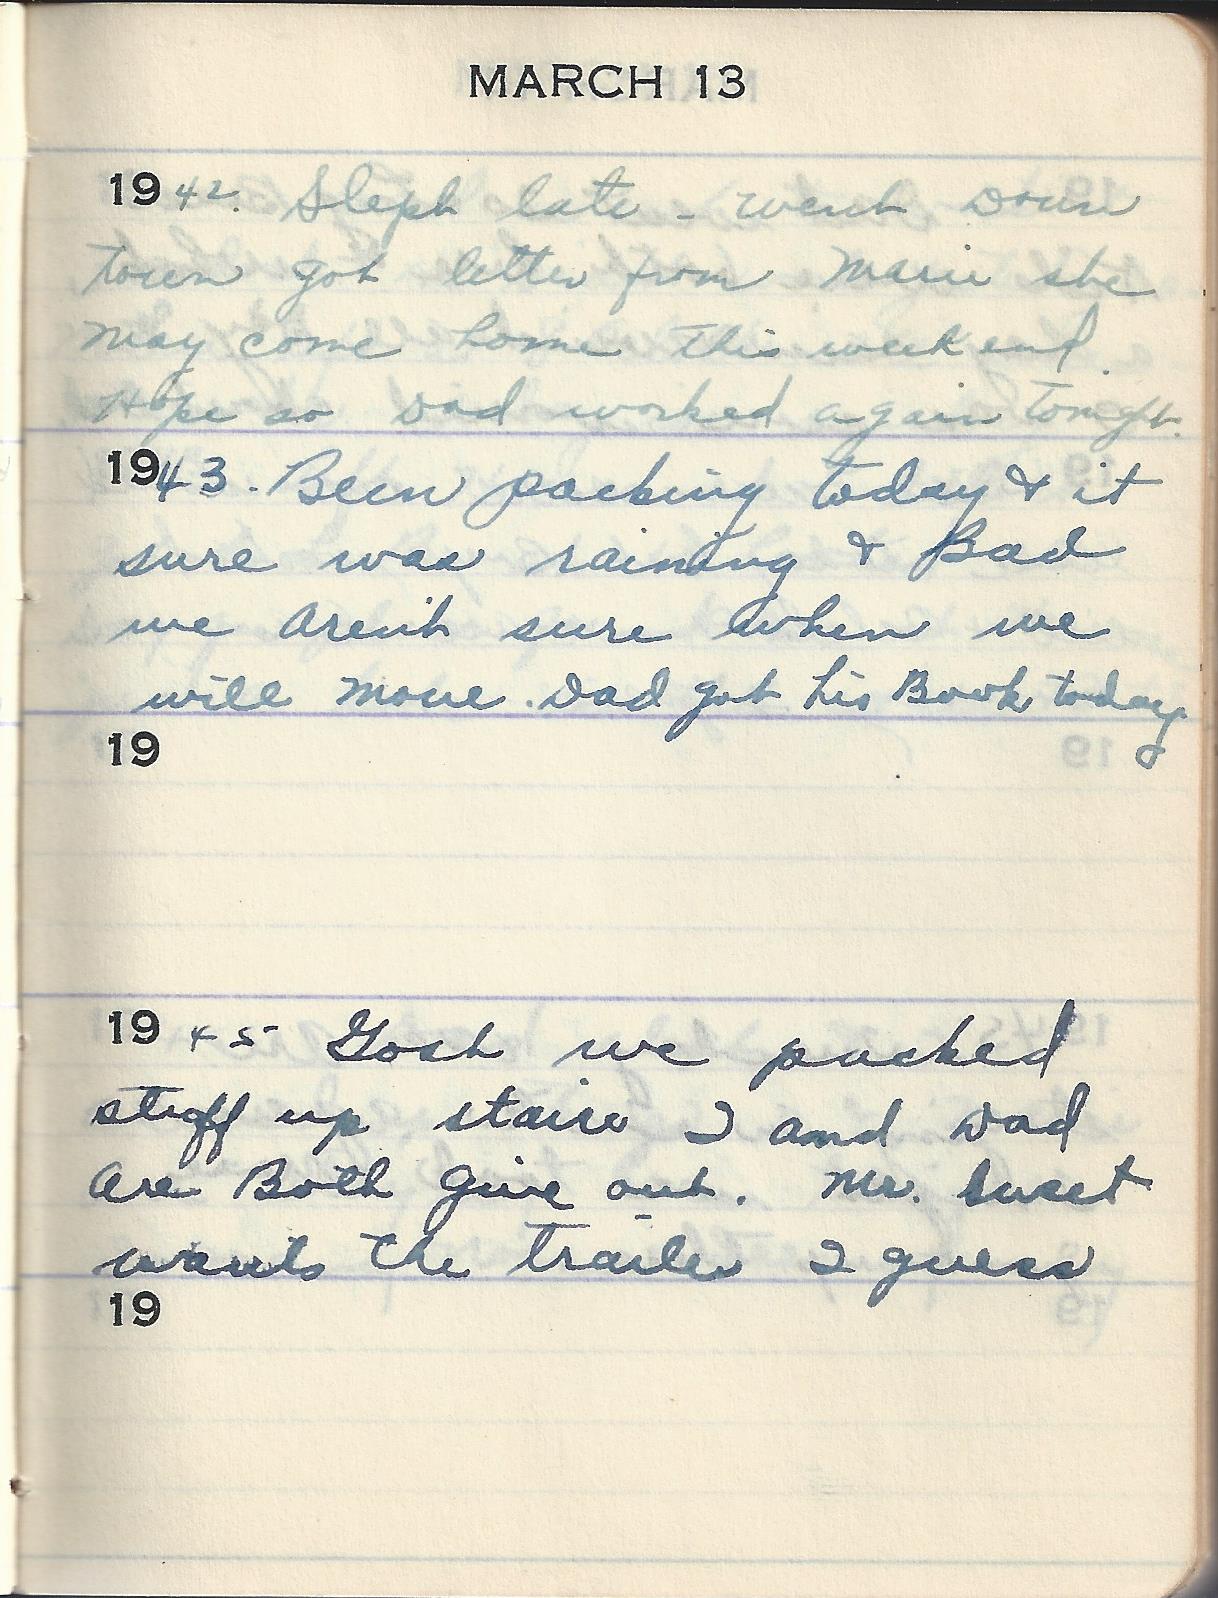 MARCH 13
1942. Sleph late - went down
town got letter from Marie she
may come home this weekend
Hope so Dad worked again tonight.
1943. Been packing today & it
sure was raining & Bad
we arent sure when we
will move. Dad got his Book today
19
1945 Gosh we packed
stuff up stairs I and Dad
are Both give out. Mr.
wants the trailer I guess
19